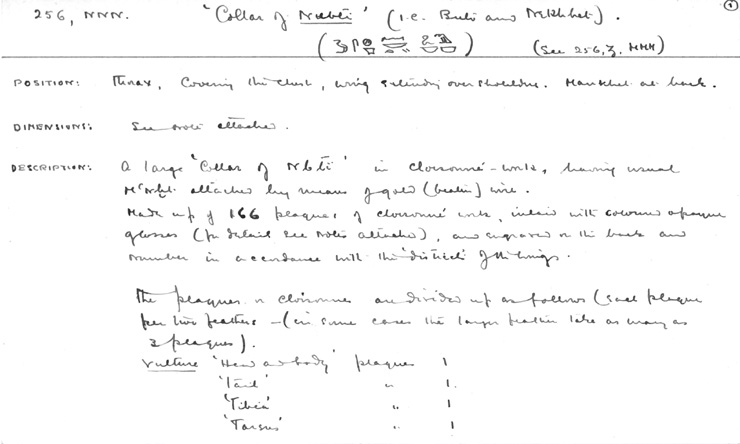 256, NNN. 'Collar of Nebti' (i.e. Buto and Nekhbet). ①
(See 256,3, MMM)
POSITION: Thorax, Covering the chest, wings extending over shoulders. Mankhet at back.
DIMENSIONS: See note attached.
DESCRIPTION: A large 'Collar of Nbti' in cloisonné-work, having usual
M'nkht. attached by means of gold (beaten) wire.
Made up of 166 plaques, of cloisonné work, inlaid with coloured opaque
glasses (for detail see notes attached), and engraved on the back and
number in accordance with the 'districts' of the wings.
The plaques in cloisonné are divided up as follows (each plaque
per two feathers - (in some cases the larger feather take as many as
3 plaques).
Vulture 'Head and body' plaques 1
'Tail' " 1.
'Tibia' " 1
'Tarsus' " 1